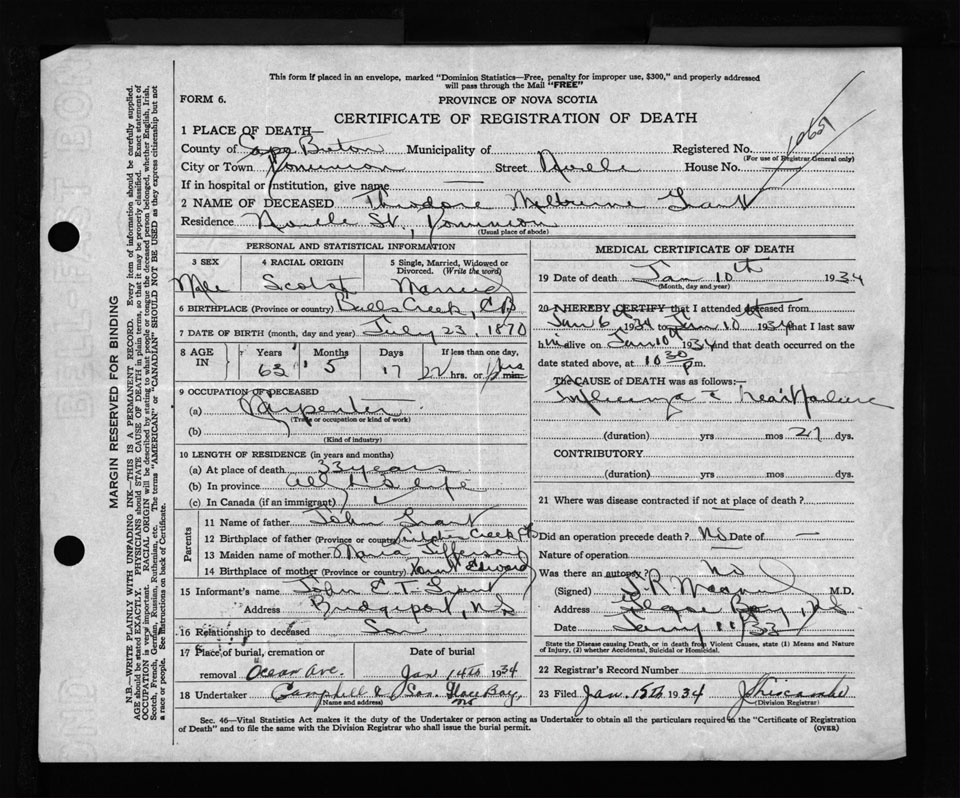 This form if placed in an envelope, marked "Dominion Statistics—Free, penalty for improper use, $300," and properly addressed
will pass through the Mail "FREE"
FORM 6.
PROVINCE OF NOVA SCOTIA
CERTIFICATE OF REGISTRATION OF DEATH
1 PLACE OF DEATH—
County of Cape Breton Municipality of Registered No. 10651
(For use of Registrar General only)
City or Town Dominion Street Neville House No.
If in hospital or institution, give name —
2 NAME OF DECEASED Theodore Melbourne Grant
Residence Neville St., Dominion
(Usual place of abode)
PERSONAL AND STATISTICAL INFORMATION
3 SEX 4 RACIAL ORIGIN 5 Single, Married, Widowed or Divorced. (Write the word)
Male Scotch Married
6 BIRTHPLACE (Province or country) Balls Creek, C.B.
7 DATE OF BIRTH (month, day and year) July 23, 1870
8 AGE IN Years Months Days If less than one day,
63 5 17 hrs. or min.
9 OCCUPATION OF DECEASED
(a) Carpenter
(Trade or occupation or kind of work)
(b)
(Kind of industry)
10 LENGTH OF RESIDENCE (in years and months)
(a) At place of death 33 years
(b) In province all his life
(c) In Canada (if an immigrant)
Parents
11 Name of father John Grant
12 Birthplace of father (Province or country) Creek
13 Maiden name of mother Maria Jefferson
14 Birthplace of mother (Province or country) Point Edward
15 Informant's name John E. T. Grant
Address Bridgeport, N.S.
16 Relationship to deceased Son
17 Place of burial, cremation or removal Ocean Ave. Date of burial Jan 14th 1934
18 Undertaker Campbell & Son. Glace Bay, NS
(Name and address)
MEDICAL CERTIFICATE OF DEATH
19 Date of death Jan 10th 1934
(Month, day and year)
20 I HEREBY CERTIFY that I attended deceased from
Jan 6 1934 to Jan 10 1934 that I last saw
him alive on Jan 10 1934 and that death occurred on the
date stated above, at 10 30 p.m.
THE CAUSE OF DEATH was as follows:—
Influenza & Heart failure
(duration) yrs mos 27 dys.
CONTRIBUTORY
(duration) yrs mos dys.
21 Where was disease contracted if not at place of death? —
Did an operation precede death? No Date of —
Nature of operation
Was there an autopsy? No
(Signed) J. R. M.D.
Address Glace Bay, NS
Date
State the Disease causing Death, or in death from Violent Causes, state (1) Means and Nature
of Injury, (2) whether Accidental, Suicidal or Homicidal.
22 Registrar's Record Number
23 Filed Jan. 15th 1934
(Division Registrar)
Sec. 46—Vital Statistics Act makes it the duty of the Undertaker or person acting as Undertaker to obtain all the particulars required in the "Certificate of Registration
of Death" and to file the same with the Division Registrar who shall issue the burial permit.
(OVER)
MARGIN RESERVED FOR BINDING
N.B.—WRITE PLAINLY WITH UNFADING INK—THIS IS A PERMANENT RECORD. Every item of information should be carefully supplied.
AGE should be stated EXACTLY. PHYSICIANS should STATE CAUSE OF DEATH in plain terms, so that it may be properly classified. Exact statement of
OCCUPATION is very important. RACIAL ORIGIN will be described by stating to what people or tongue the deceased person belonged, whether English, Irish,
Scotch, French, German, Russian, Ruthenian, etc. The terms "AMERICAN" or "CANADIAN" SHOULD NOT BE USED as they express citizenship but not
a race or people. See instructions on back of Certificate.